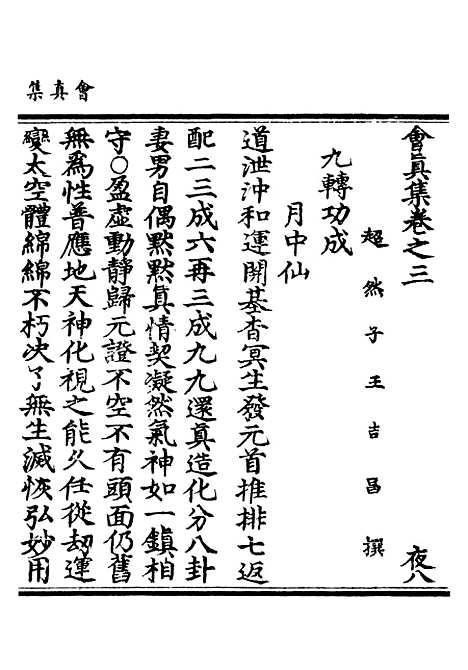 會真集
會眞集卷之三
夜八
超然子王吉昌撰
九轉功成
月中仙
道泄沖和運開基杳冥生發元首推排七返
配二三成六再三成九九還眞造化分八卦
妻男自偶默默眞情契凝然氣神如一鎮相
守○盈虛動靜歸元證不空不有頭面仍舊
無爲性普應地天神化視之能久任從劫運
變太空體綿綿不朽决了無生滅恢弘妙用